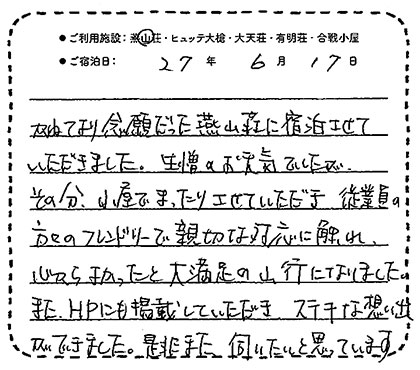 ●ご利用施設：燕山荘・ヒュッテ大槍・大天荘・有明荘・合戦小屋
●ご宿泊日： 27 年 6 月 17 日
かねてより念願だった燕山荘に宿泊させて
いただきました。生憎のお天気でしたが、
その分、小屋でまったりさせていただき 従業員の
方々のフレンドリーで親切な対応に触れ、
心からよかったと大満足の山行になりました。
また、HPにも掲載していただき ステキな想い出
ができました。是非また 伺いたいと思っています